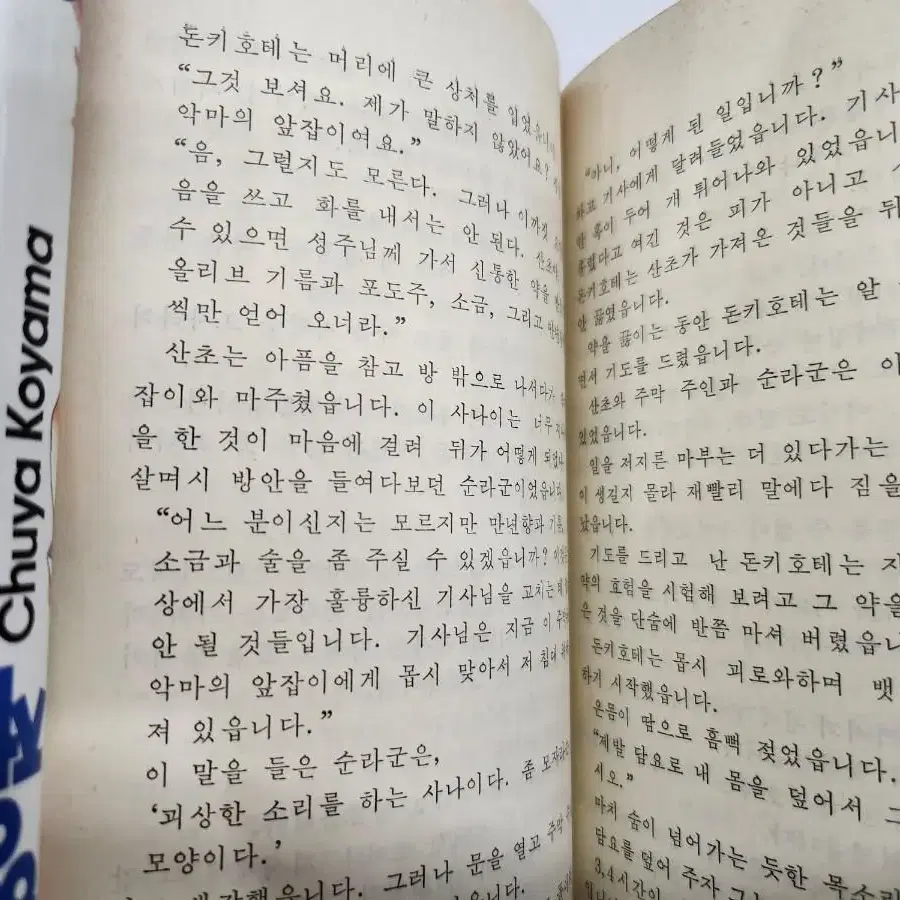 Chuya Koyama
돈키호테는 머리에 큰 상처를 입었읍니다
“그것 보셔요. 제가 말하지 않았어요?
악마의 앞잡이여요.”
“음, 그럴지도 모른다. 그러나 이까짓
음을 쓰고 화를 내서는 안 된다. 산초야,
수 있으면 성주님께 가서 신통한 약을
올리브 기름과 포도주, 소금, 그리고
씩만 얻어 오너라.”
산초는 아픔을 참고 방 밖으로 나서다가
잡이와 마주쳤읍니다. 이 사나이는 너무
을 한 것이 마음에 걸려 뒤가 어떻게 되었나
살며시 방안을 들여다보던 순라군이었읍니다
“어느 분이신지는 모르지만 만년향과 기름,
소금과 술을 좀 주실 수 있겠읍니까?
상에서 가장 훌륭하신 기사님을 고치는데
안 될 것들입니다. 기사님은 지금 이
악마의 앞잡이에게 몹시 맞아서 저 침대
져 있읍니다.”
이 말을 들은 순라군은,
‘괴상한 소리를 하는 사나이다. 좀 모자라는
모양이다.’
그러나 문을 열고 주막
“아니, 어떻게 된 일입니까?”
하고 기사에게 달려들었읍니다. 기사
알 혹이 두어 개 튀어나와 있었읍니
흘렸다고 여긴 것은 피가 아니고
돈키호테는 산초가 가져온 것들을 뒤
안 끓였읍니다.
약을 끓이는 동안 돈키호테는 알
면서 기도를 드렸읍니다.
산초와 주막 주인과 순라군은 이
있었읍니다.
일을 저지른 마부는 더 있다가는
이 생길지 몰라 재빨리 말에다 짐을
났읍니다.
기도를 드리고 난 돈키호테는 지
약의 효험을 시험해 보려고 그 약을
은 것을 단숨에 반쯤 마셔 버렸읍니
돈키호테는 몹시 괴로와하며 뱃
하기 시작했읍니다.
온몸이 땀으로 흠뻑 젖었읍니다.
“제발 담요로 내 몸을 덮어서 그
시오.”
마치 숨이 넘어가는 듯한 목소리
담요를 덮어 주자 그는
3,4시간이